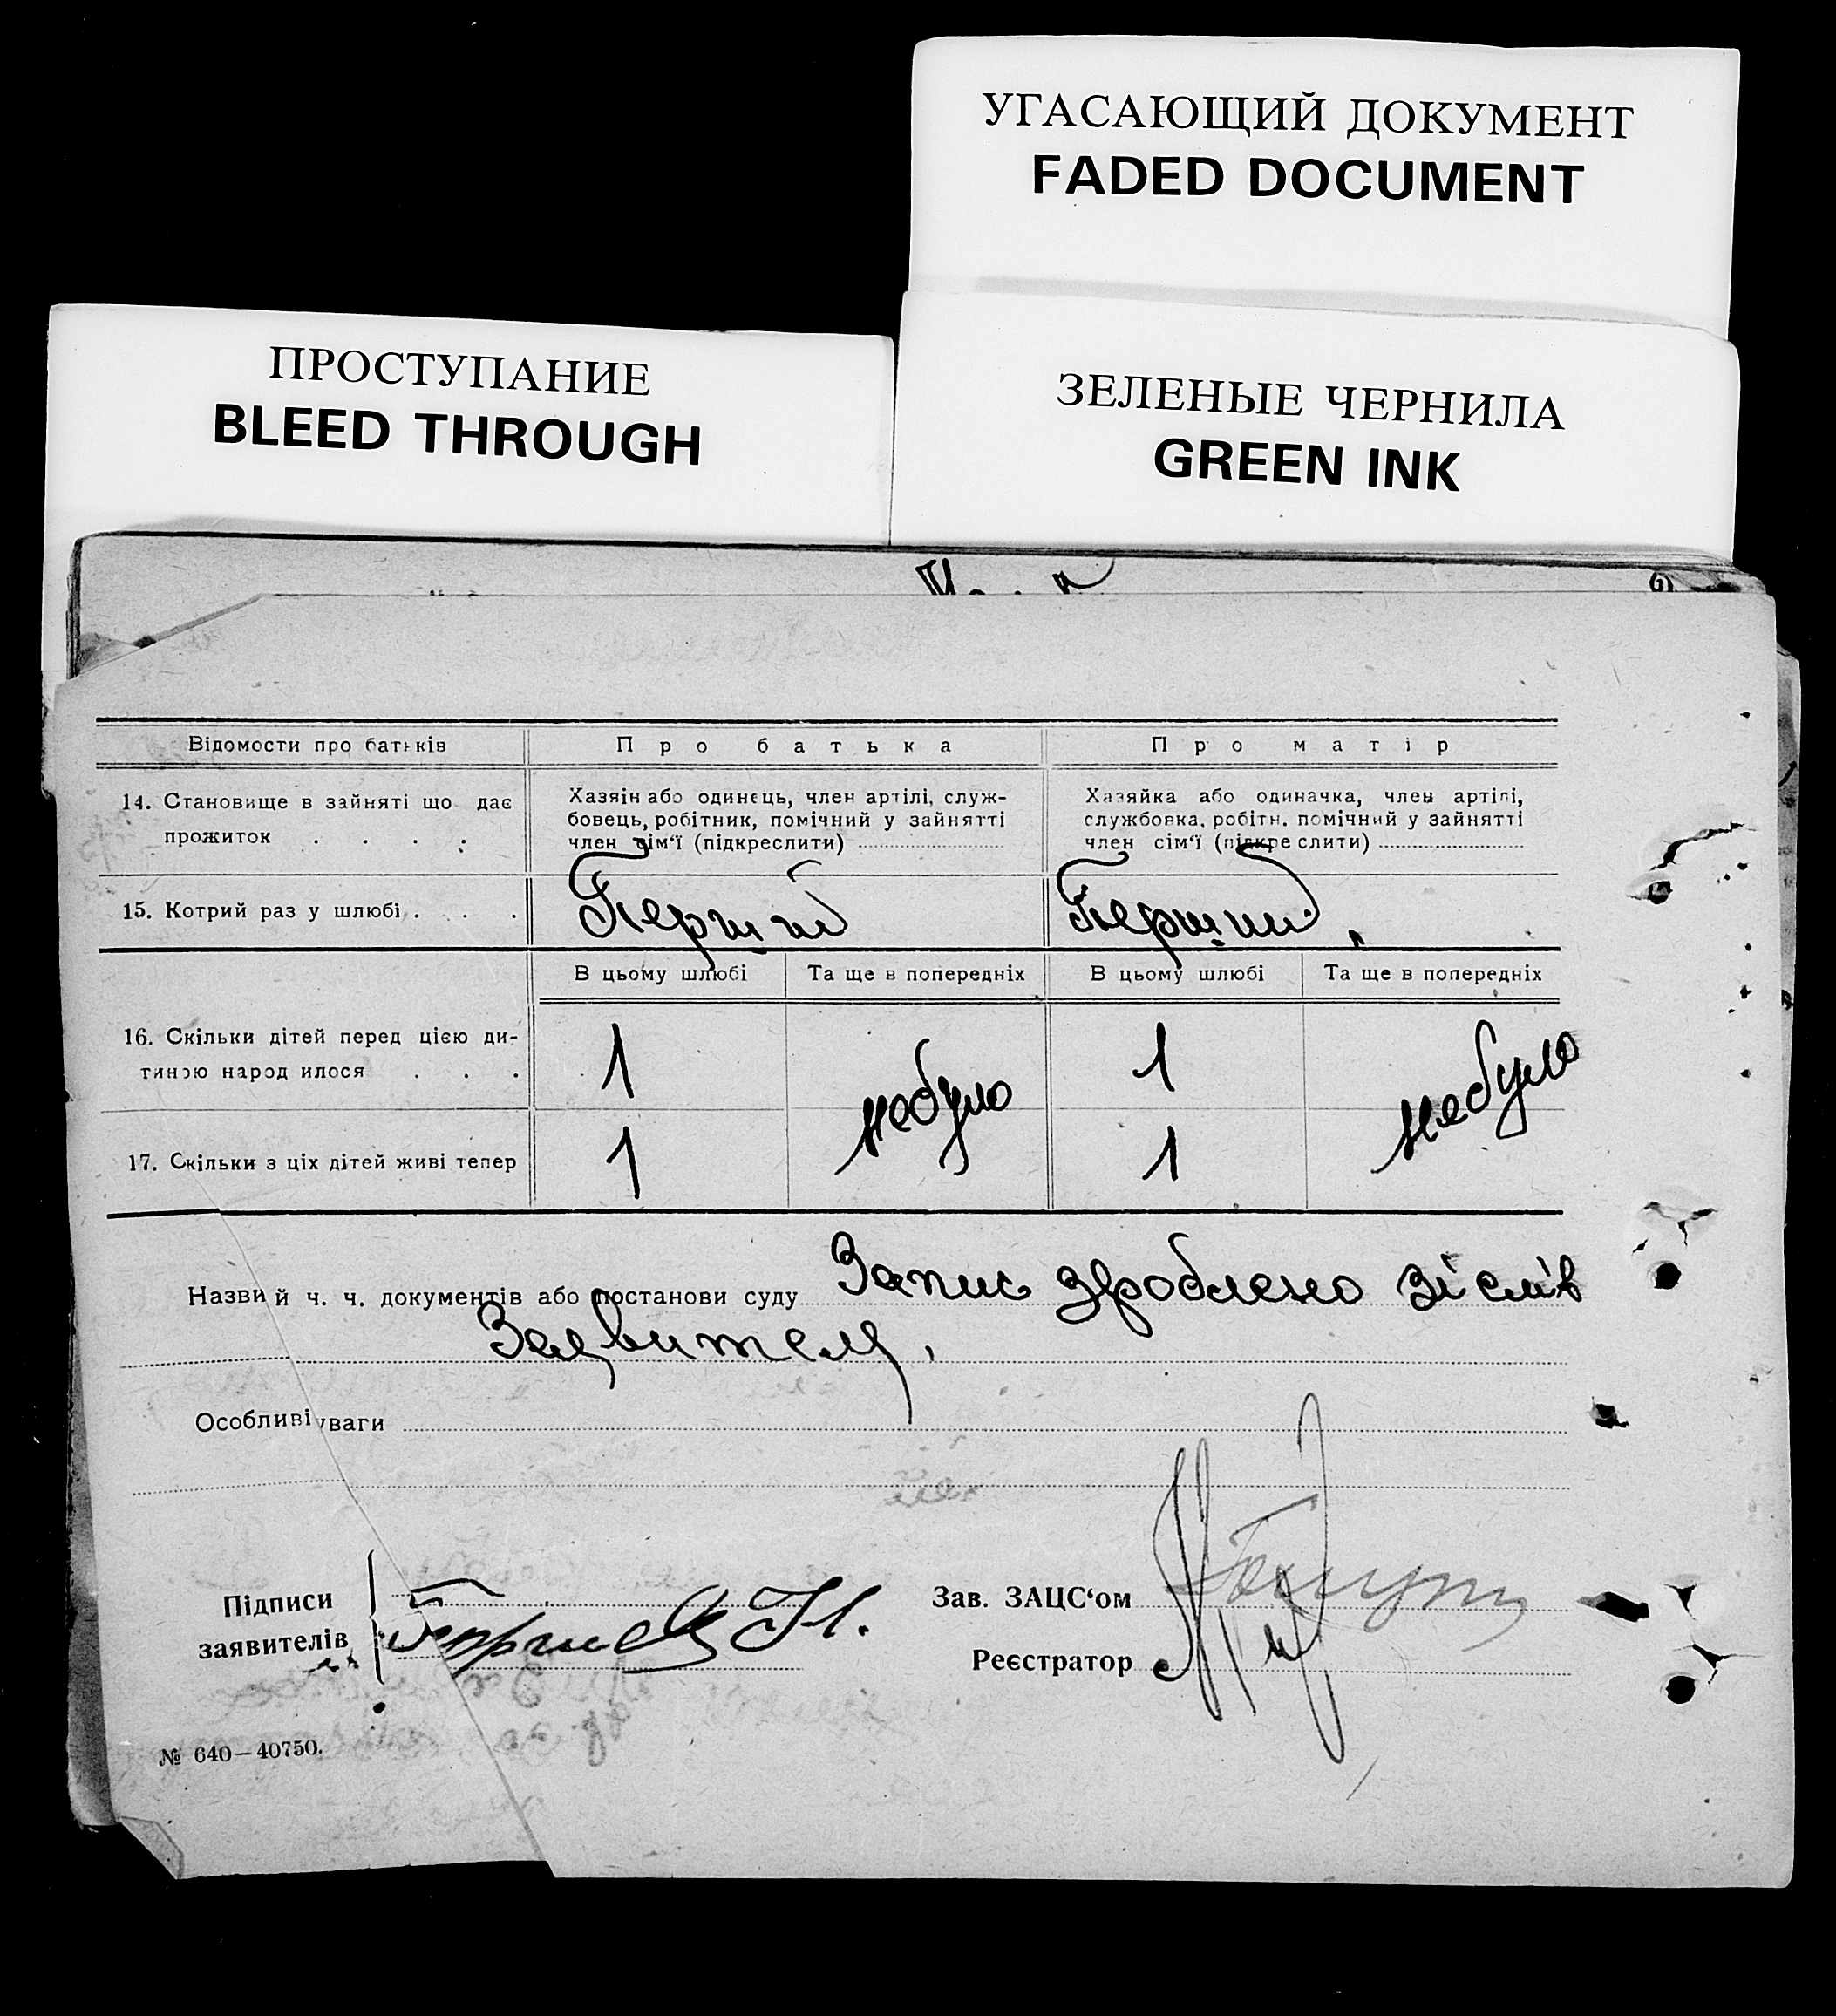 УГАСАЮЩИЙ ДОКУМЕНТ
FADED DOCUMENT
ПРОСТУПАНИЕ
BLEED THROUGH
ЗЕЛЕНЫЕ ЧЕРНИЛА
GREEN INK
Відомости про батьків
Про батька
Про матір
14. Становище в зайняті що дає
прожиток . . . .
Хазяін або одинець, член артілі, служ-
бовець, робітник, помічний у зайнятті
член сім‘ї (підкреслити)
Хазяйка або одиначка, член артілі,
службовка, робітн. помічний у зайнятті
член сім‘ї (підкреслити)
15. Котрий раз у шлюбі . . .
Перший
Перший
В цьому шлюбі
Та ще в попередніх
В цьому шлюбі
Та ще в попередніх
16. Скільки дітей перед цією ди-
тиною народилося . . .
1
небуло
1
небуло
17. Скільки з ціх дітей живі тепер
1
1
Назви й ч. ч. документів або постанови суду Запис зроблено зі слів
Заявителя.
Особливі уваги
Підписи
заявителів
Зав. ЗАЦС‘ом
Реєстратор
№ 640—40750.